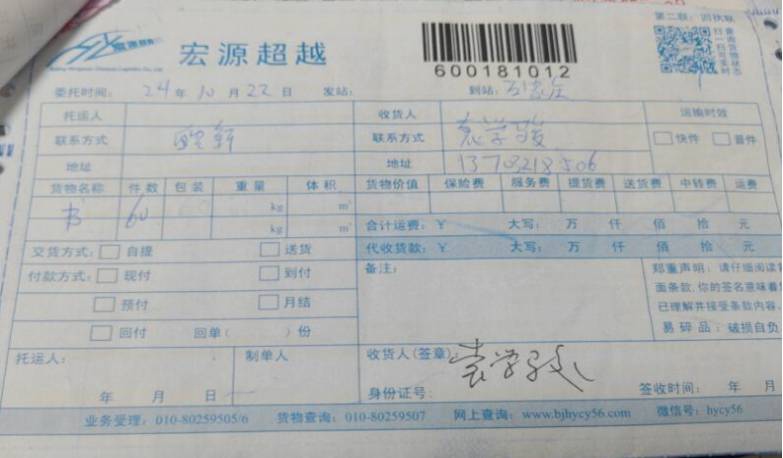 第二联：回执联
宏源超越
600181012
委托时间： 24 年 10 月 22 日 发站： 到站：石家庄
托运人 收货人 运输时效
联系方式 联系方式 袁学骏 快件 普件
地址 地址 13703218506
货物名称 件数 包装 重量 体积 货物价值 保险费 服务费 提货费 送货费 中转费 运费
书 60 kg m³
kg m³ 合计运费：￥ 大写： 万 仟 佰 拾 元
交货方式： 自提 送货 代收货款：￥ 大写： 万 仟 佰 拾 元
付款方式： 现付 到付 备注：
预付 月结
回付 回单（ ）份
郑重声明：请仔细阅读背
面条款，你的签名意味着
已理解并接受条款内容。
易碎品：破损自负
托运人： 制单人 收货人（签章） 袁学骏
年 月 日 身份证号： 签收时间： 年 月
业务受理：010-80259505/6 货物查询：010-80259507 网上查询：www.bjhycy56.com 微信号：hycy56